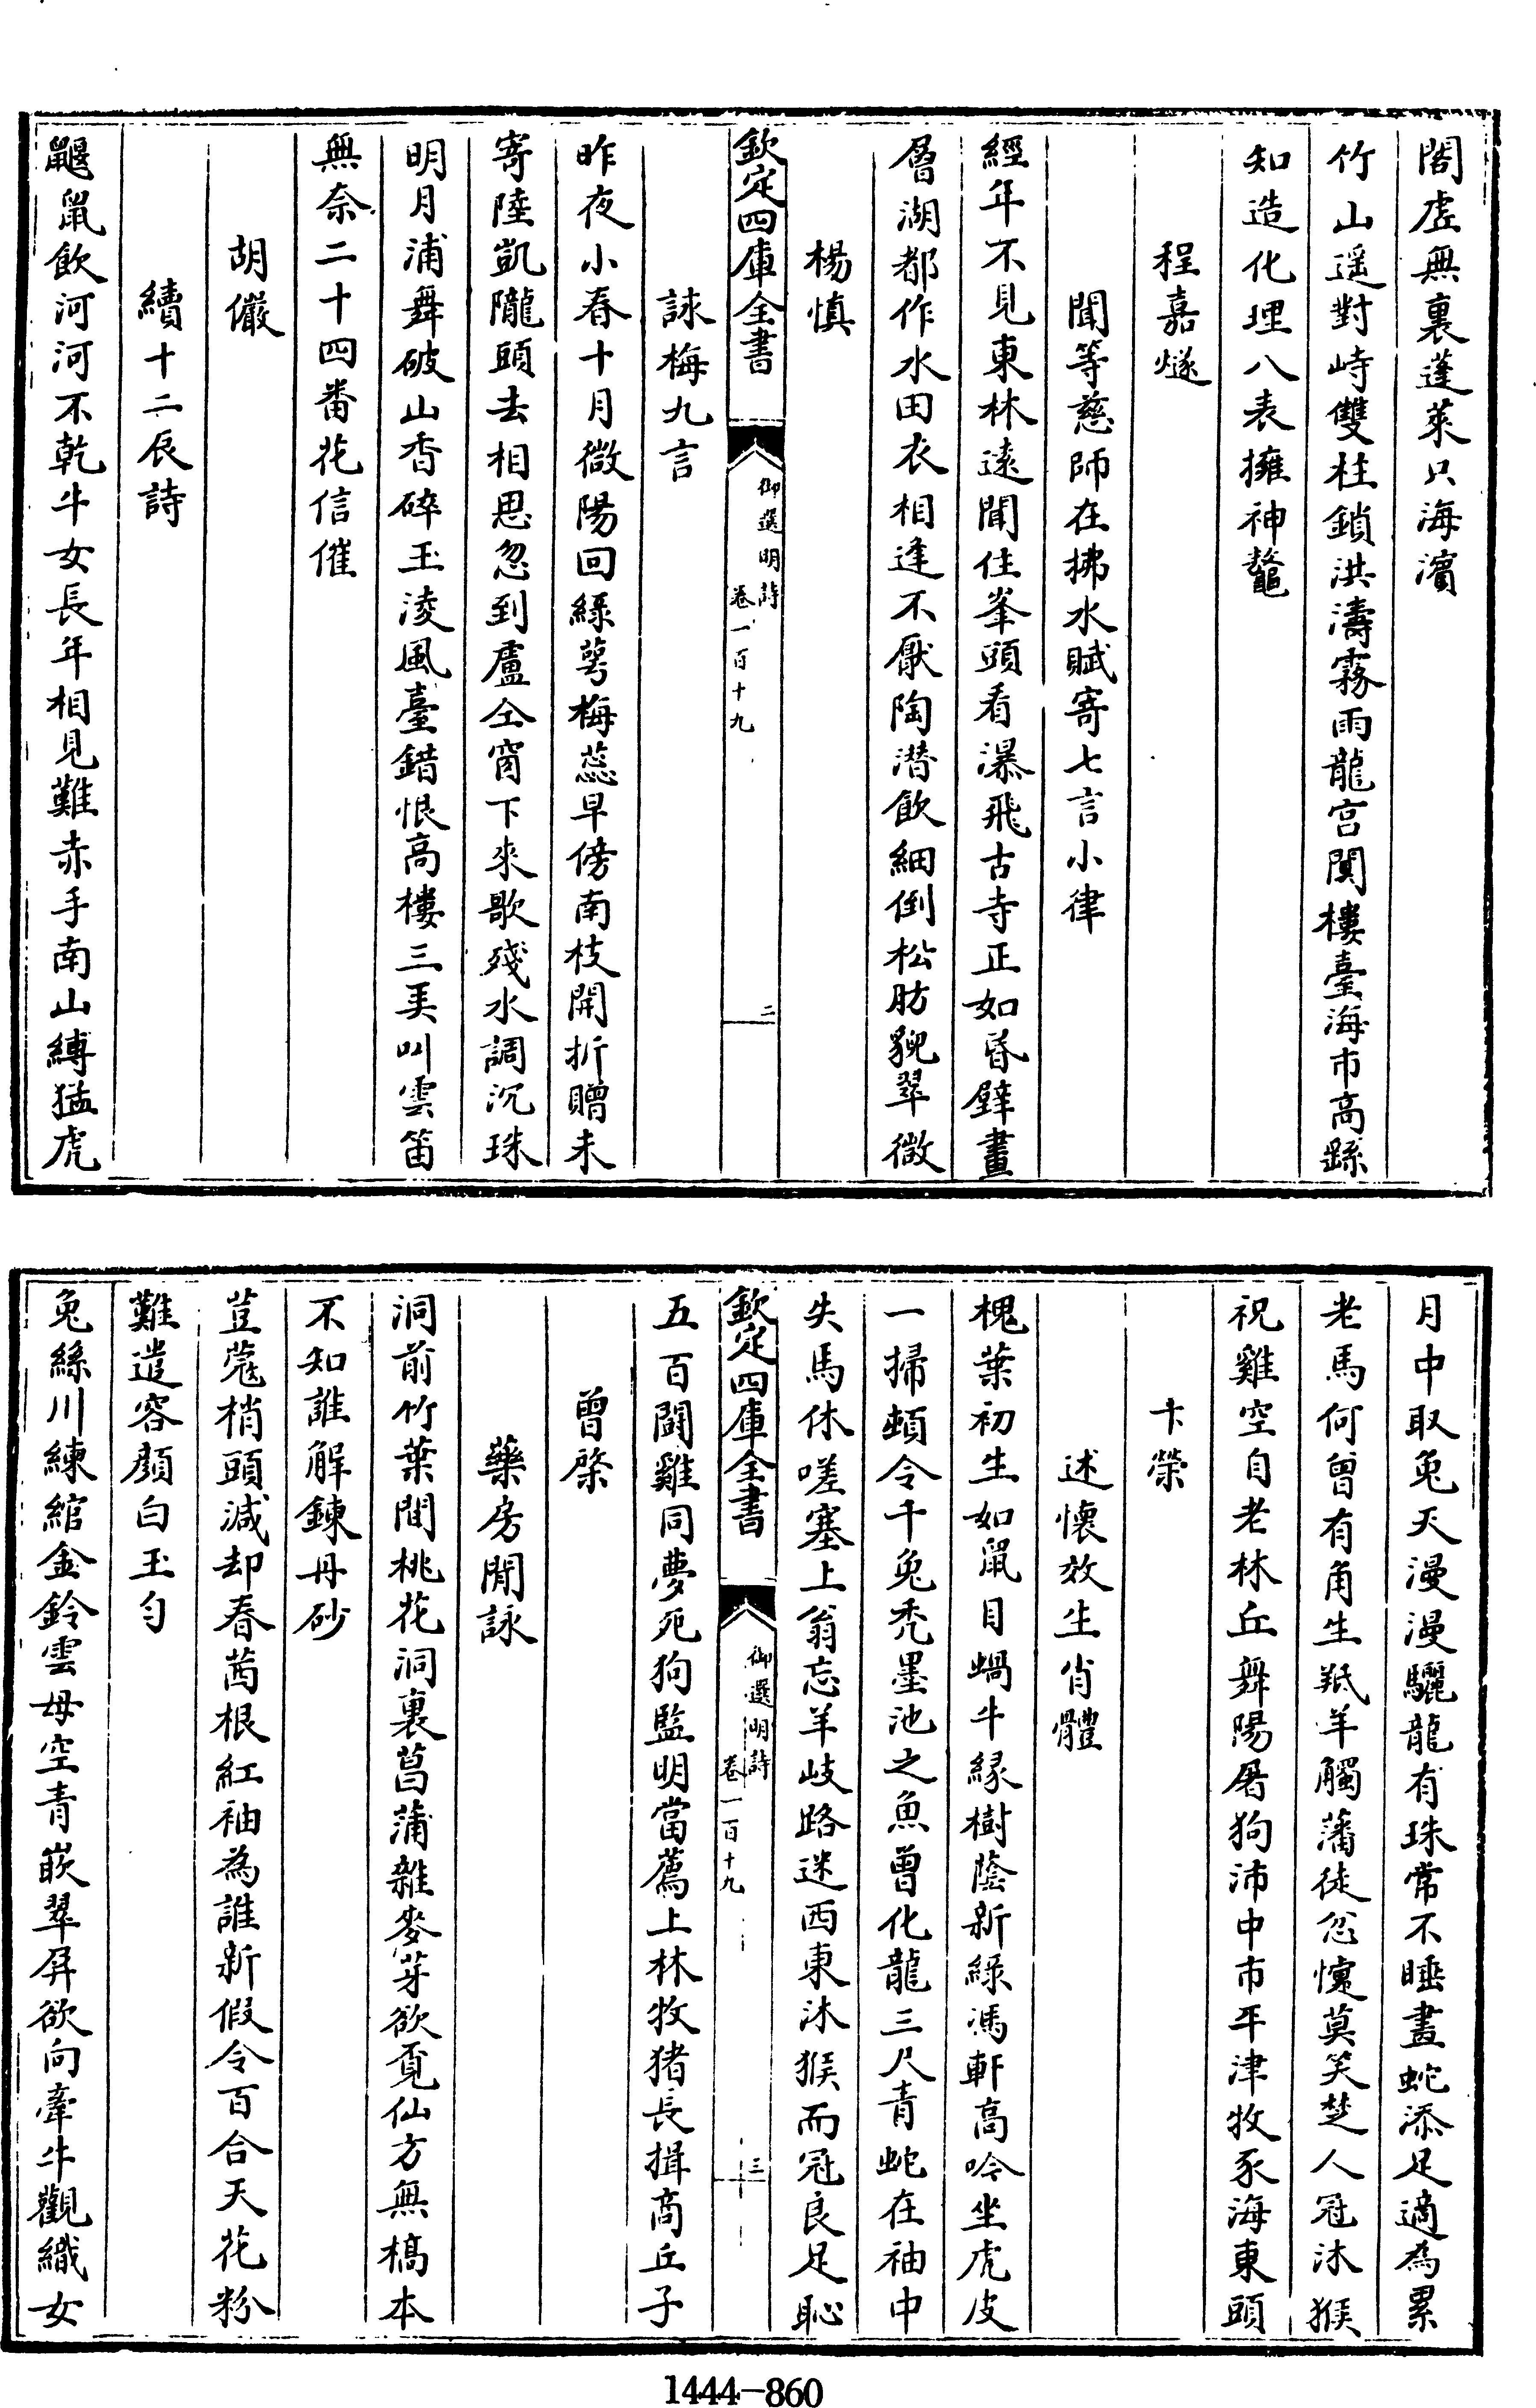 閣虛無裏蓬萊只海濱
竹山遥對峙雙柱鎖洪濤霧雨龍宫闃樓臺海市髙繇
知造化理八表擁神鼇
程嘉燧
聞等慈師在拂水賦寄七言小律
經年不見東林逺聞住峯頭看瀑飛古寺正如昏壁畫
層湖都作水田衣相逢不厭陶潛飲細倒松肪貎翠微
楊慎
欽定四庫全書
御選明詩
卷一百十九
二
詠梅九言
昨夜小春十月微陽回緑蕚梅蕊早傍南枝開折贈未
寄陸凱隴頭去相思忽到盧仝窗下來歌殘水調沉珠
明月浦舞破山香碎玉淩風臺錯恨髙樓三弄叫雲笛
無奈二十四番花信催
胡儼
續十二辰詩
鼴鼠飲河河不乾牛女長年相見難赤手南山縛猛虎
月中取兔天漫漫驪龍有珠常不睡畫蛇添足適為累
老馬何曾有角生羝羊觸藩徒忿懥莫笑楚人冠沐猴
祝雞空自老林丘舞陽屠狗沛中市平津牧豕海東頭
卞榮
述懐效生肖體
槐葉初生如鼠目蝸牛緣樹陰新緑馮軒髙吟坐虎皮
一掃頓令千兔秃墨池之魚曾化龍三尺青蛇在袖中
失馬休嗟塞上翁忘羊岐路迷西東沐猴而冠良足恥
欽定四庫全書
御選明詩
卷一百十九
三
五百鬭雞同夢死狗監明當薦上林牧猪長揖商丘子
曾棨
藥房閒詠
洞前竹葉間桃花洞裏菖蒲雜麥芽欲覓仙方無槁本
不知誰解鍊丹砂
荳蔻梢頭減却春茜根紅袖為誰新假令百合天花粉
難遣容顔白玉勻
兔絲川練綰金鈴雲母空青嵌翠屏欲向牽牛觀織女
1444-860